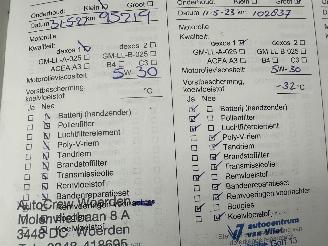 Onderhoud: Klein Groot
Datum 31-5-22 km 95219
Motorolie
Kwaliteit: dexos 1 dexos 2
GM-LL-A-025 GM-LL-B-025
ACEA A3 B4 C3
Motorolieviscositeit: 5W-30
Vorstbescherming koelvloeistof °C
Ja Nee
Batterij (handzender)
Pollenfilter
Luchtfilterelement
Poly-V-riem
Tandriem
Brandstoffilter
Transmissieolie
Remvloeistof
Bandenreparatieset
AutoCrew Woerden
Molenvlietbaan 8 A
3448 DC Woerden
Onderhoud: Klein Groot
Datum 11-5-23 km 102637
Motorolie
Kwaliteit: dexos 1 dexos 2
GM-LL-A-025 GM-LL-B-025
ACEA A3 B4 C3
Motorolieviscositeit: 5W-30
Vorstbescherming koelvloeistof -32 °C
Ja Nee
Batterij (handzender)
Pollenfilter
Luchtfilterelement
Poly-V-riem
Tandriem
Brandstoffilter
Transmissieolie
Remvloeistof
Bandenreparatieset
Bougies
Koelvloeistof
autocentrum
van Vliet